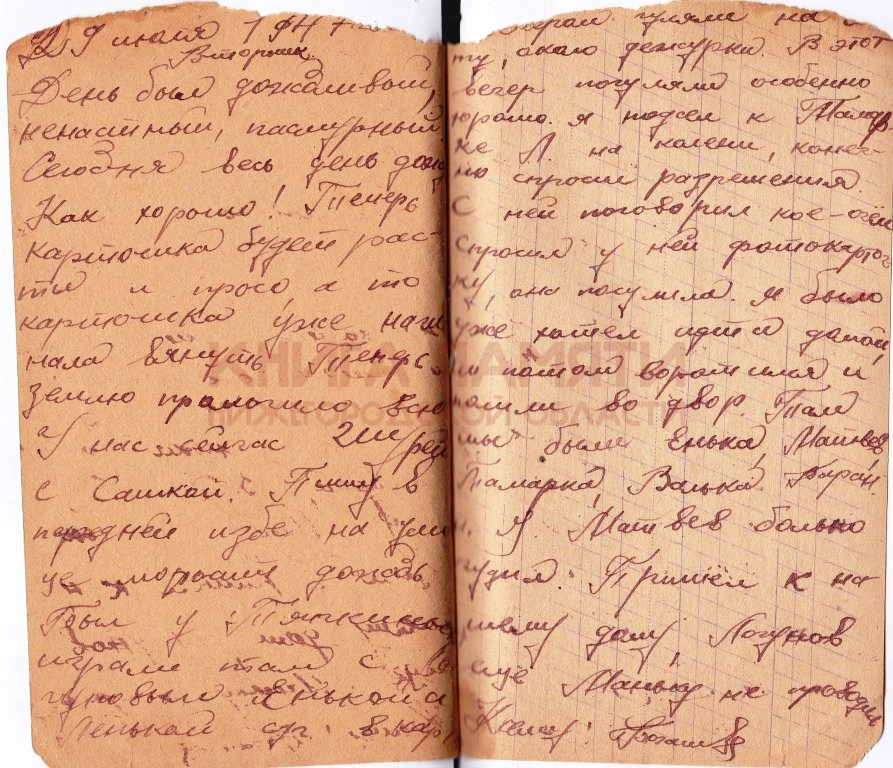 29 июля 194
Вторник.
День был дождливый,
ненастный, пасмурный
Сегодня весь день дождь
Как хорошо! Теперь
картошка будет рас-
ти и просо а то
картошка уже нач
нала вянуть Теперь
землю промочило всю
У нас сейчас
с Сашкой. Пишу в
передней избе на ули
це моросит дождь
Был у
играли там с
Енькой и
Ленькой в кар
гуляли на
ту, около дежурки. В этот
вечер погуляли особенно
хорошо. Я подсел к Тамар
ке Л. на колени, конеч-
но спросил разрешения.
С ней поговорил кое-о чём
Спросил у ней фотокарточ
ку, она посулила. Я было
уже хотел идти домой,
но потом воротился и
пошли во двор. Там
были Енька, Матвев
Тамарка, Валька Баран.
н. Я Матвев больно
удил. Пришёл к на
шему дому, Логунов
ещё Маньку не проводил
КНИГА ПАМЯТИ
НИЖЕГОРОДСКОЙ ОБЛАСТИ